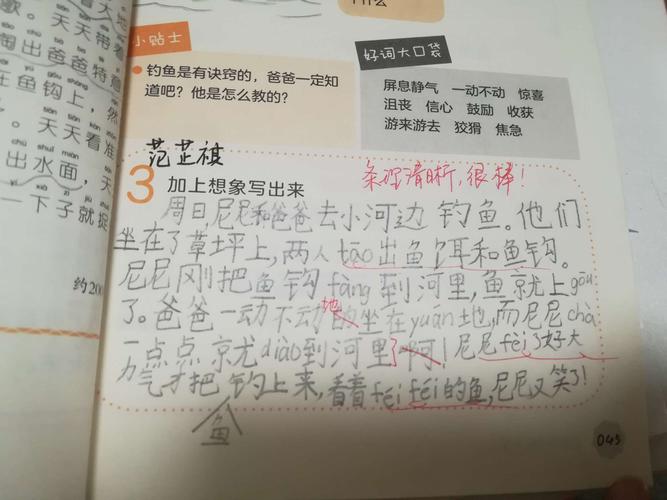 什么
小贴士
钓鱼是有诀窍的，爸爸一定知
道吧？他是怎么教的？
好词大口袋
屏息静气 一动不动 惊喜
沮丧 信心 鼓励 收获
游来游去 狡猾 焦急
天天带着
掏出爸爸特意
在鱼钩上，然
天天看准
出水面，天
一下子就捉
约200
范芷祺
3 加上想象写出来
条理清晰，很棒！
周日，尼尼和爸爸去小河边钓鱼。他们
坐在了草坪上，两人tāo出鱼饵和鱼钩。
尼尼刚把鱼钩fàng到河里，鱼就上gōu
了。爸爸一动不动的地坐在yuán地，而尼尼chà
一点点京尤diào到河里了啊！尼尼fèi了好大
力气才把钓上来，看着féi féi的鱼，尼尼又笑了！
鱼
045